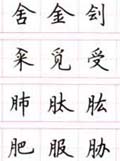 舍 金 刽
采 觅 受
肺 肽 肱
肥 服 胁